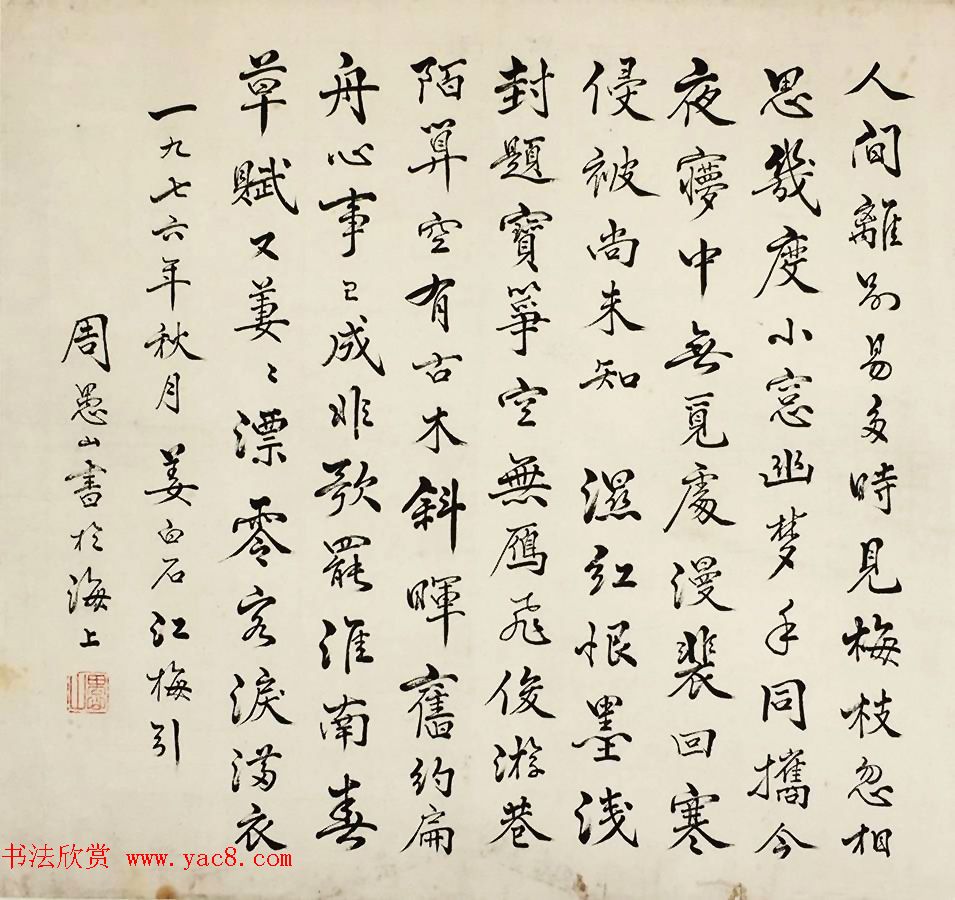 人間離別易多時見梅枝忽相
思幾度小窓幽梦手同攜今
夜㝱中無覓處漫裴回寒
侵被尚未知 濕紅恨墨浅
封題寶箏空無鴈飛俊游巷
陌算空有古木斜暉舊約扁
舟心事已成非歌罷淮南春
草賦又萋〻漂零客淚滿衣
一九七六年秋月姜白石江梅引
周愚山書於海上
书法欣赏 www.yac8.com